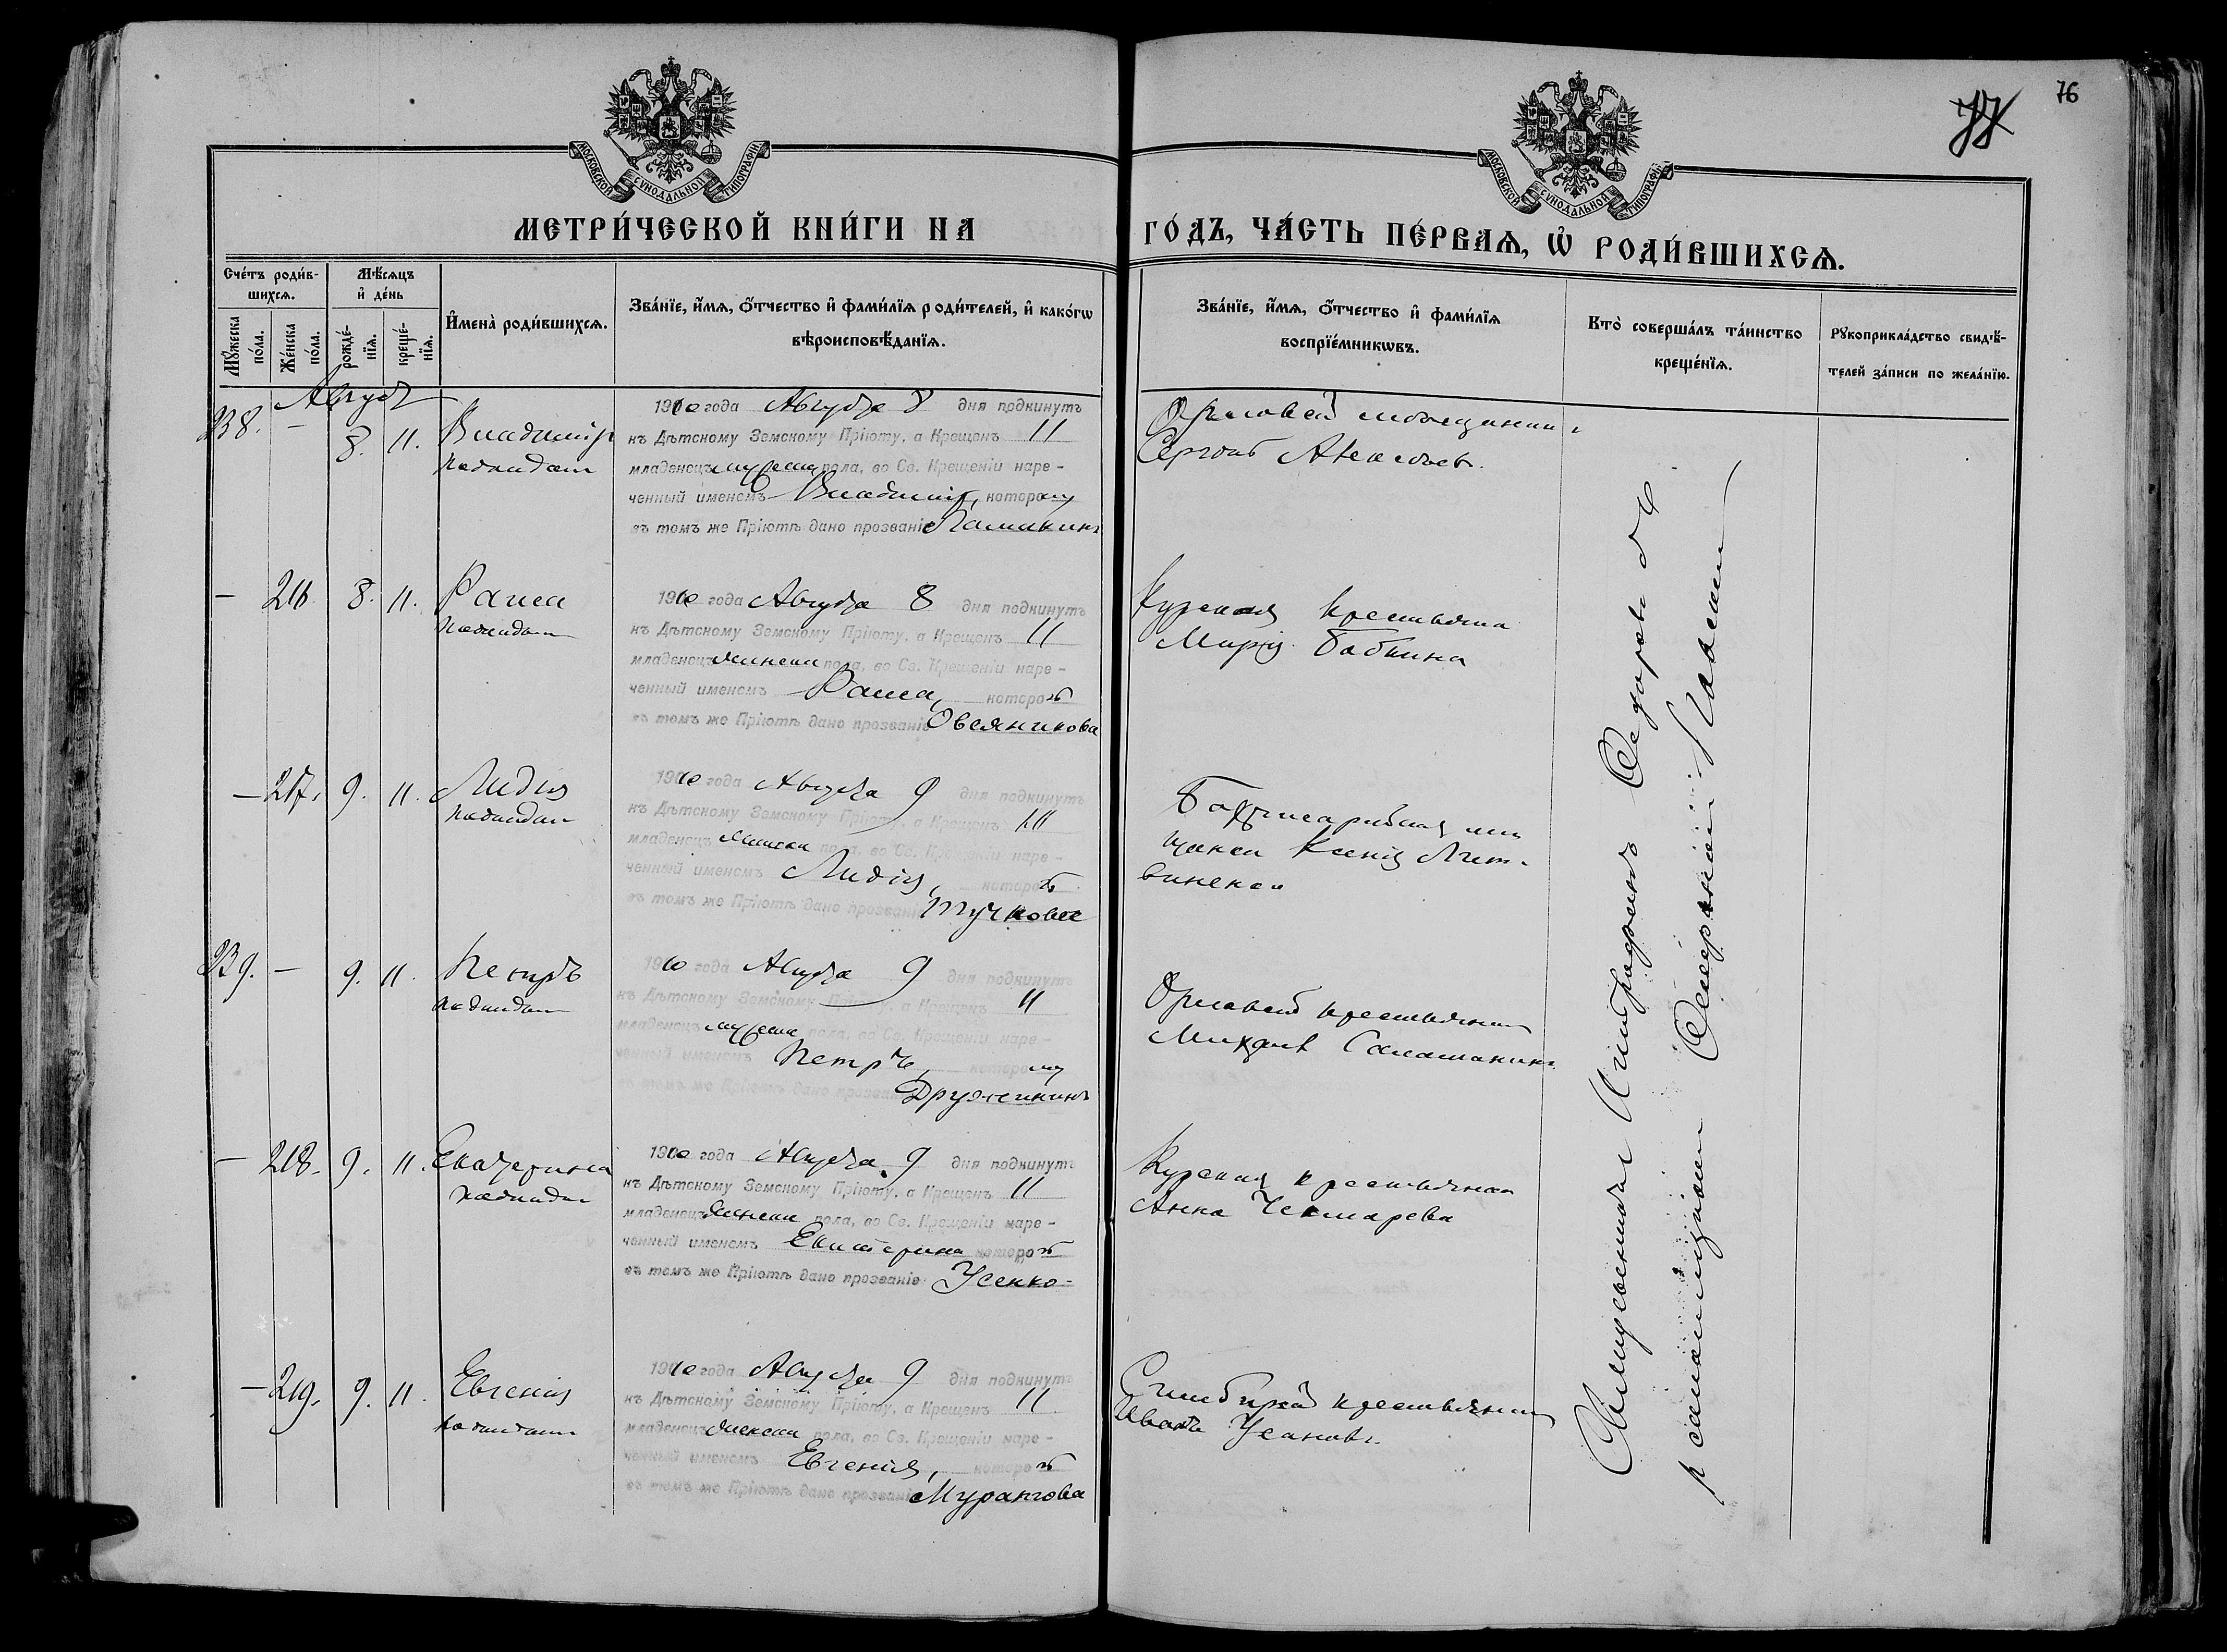 76
МОСКОВСКОЙ СУНОДАЛЬНОЙ ТИПОГРАФІИ
МОСКОВСКОЙ СУНОДАЛЬНОЙ ТИПОГРАФІИ
МЕТРИ́ЧЕСКОЙ КНИ́ГИ НА
ГО́ДЪ, ЧА́СТЬ ПЕ́РВАѦ, Ѡ҆ РОДИ́ВШИХСѦ.
Сче́тъ роди́в-
шихсѧ.
Мꙋ́жеска по́ла.
Же́нска по́ла.
Мѣ́сѧцъ
и҆ де́нь
рожде́-
нїѧ.
креще́-
нїѧ.
И҆мена̀ роди́вшихсѧ.
Зва́нїе, и҆́мѧ, ѻ҆́тчество и҆ фами́лїѧ роди́телей, и҆ како́гѡ
вѣроисповѣ́данїѧ.
Зва́нїе, и҆́мѧ, ѻ҆́тчество и҆ фами́лїѧ
воспрїе́мникѡвъ.
Кто̀ соверша́лъ та́инство
креще́нїѧ.
Рꙋкоприкла́дство свидѣ́-
телей за́писи по жела́нїю.
Августъ
238. – 8. 11. Владиміръ
подкидыш
1910 года Августа 8 дня подкинутъ
къ Дѣтскому Земскому Пріюту, а Крещенъ 11
младенецъ мужеска пола, во Св. Крещеніи наре-
ченный именемъ Владиміръ, которому
въ томъ же Пріютѣ дано прозваніе
Орловскій мѣщанинъ
Сергѣй
– 216. 8. 11. Раиса
подкидыш
1910 года Августа 8 дня подкинутъ
къ Дѣтскому Земскому Пріюту, а Крещенъ 11
младенецъ женска пола, во Св. Крещеніи наре-
ченный именемъ Раиса, которой
въ томъ же Пріютѣ дано прозваніе Овсяникова
Курская крестьянка
Марія Бабкина
– 217. 9. 11. Лидія
подкидыш
1910 года Августа 9 дня подкинутъ
къ Дѣтскому Земскому Пріюту, а Крещенъ 11
младенецъ женска пола, во Св. Крещеніи наре-
ченный именемъ Лидія, которой
въ томъ же Пріютѣ дано прозваніе Тучкова
мѣ
щанка Ксенія Лит-
виненко
239. – 9. 11. Петръ
подкидыш
1910 года Августа 9 дня подкинутъ
къ Дѣтскому Земскому Пріюту, а Крещенъ 11
младенецъ мужеска пола, во Св. Крещеніи наре-
ченный именемъ Петръ, которому
въ томъ же Пріютѣ дано прозваніе Дружининъ
Орловскій крестьянинъ
Михаилъ
– 218. 9. 11. Екатерина
подкидыш
1910 года Августа 9 дня подкинутъ
къ Дѣтскому Земскому Пріюту, а Крещенъ 11
младенецъ женска пола, во Св. Крещеніи наре-
ченный именемъ Екатерина которой
въ томъ же Пріютѣ дано прозваніе Усенко
Курская крестьянка
Анна Чекмарева
– 219. 9. 11. Евгенія
подкидыш
1910 года Августа 9 дня подкинутъ
къ Дѣтскому Земскому Пріюту, а Крещенъ 11
младенецъ женска пола, во Св. Крещеніи наре-
ченный именемъ Евгенія, которой
въ томъ же Пріютѣ дано прозваніе
Симбирскій крестьянинъ
Иванъ Усановъ.
Священникъ Митрофанъ Ѳедоровъ съ
псаломщикомъ